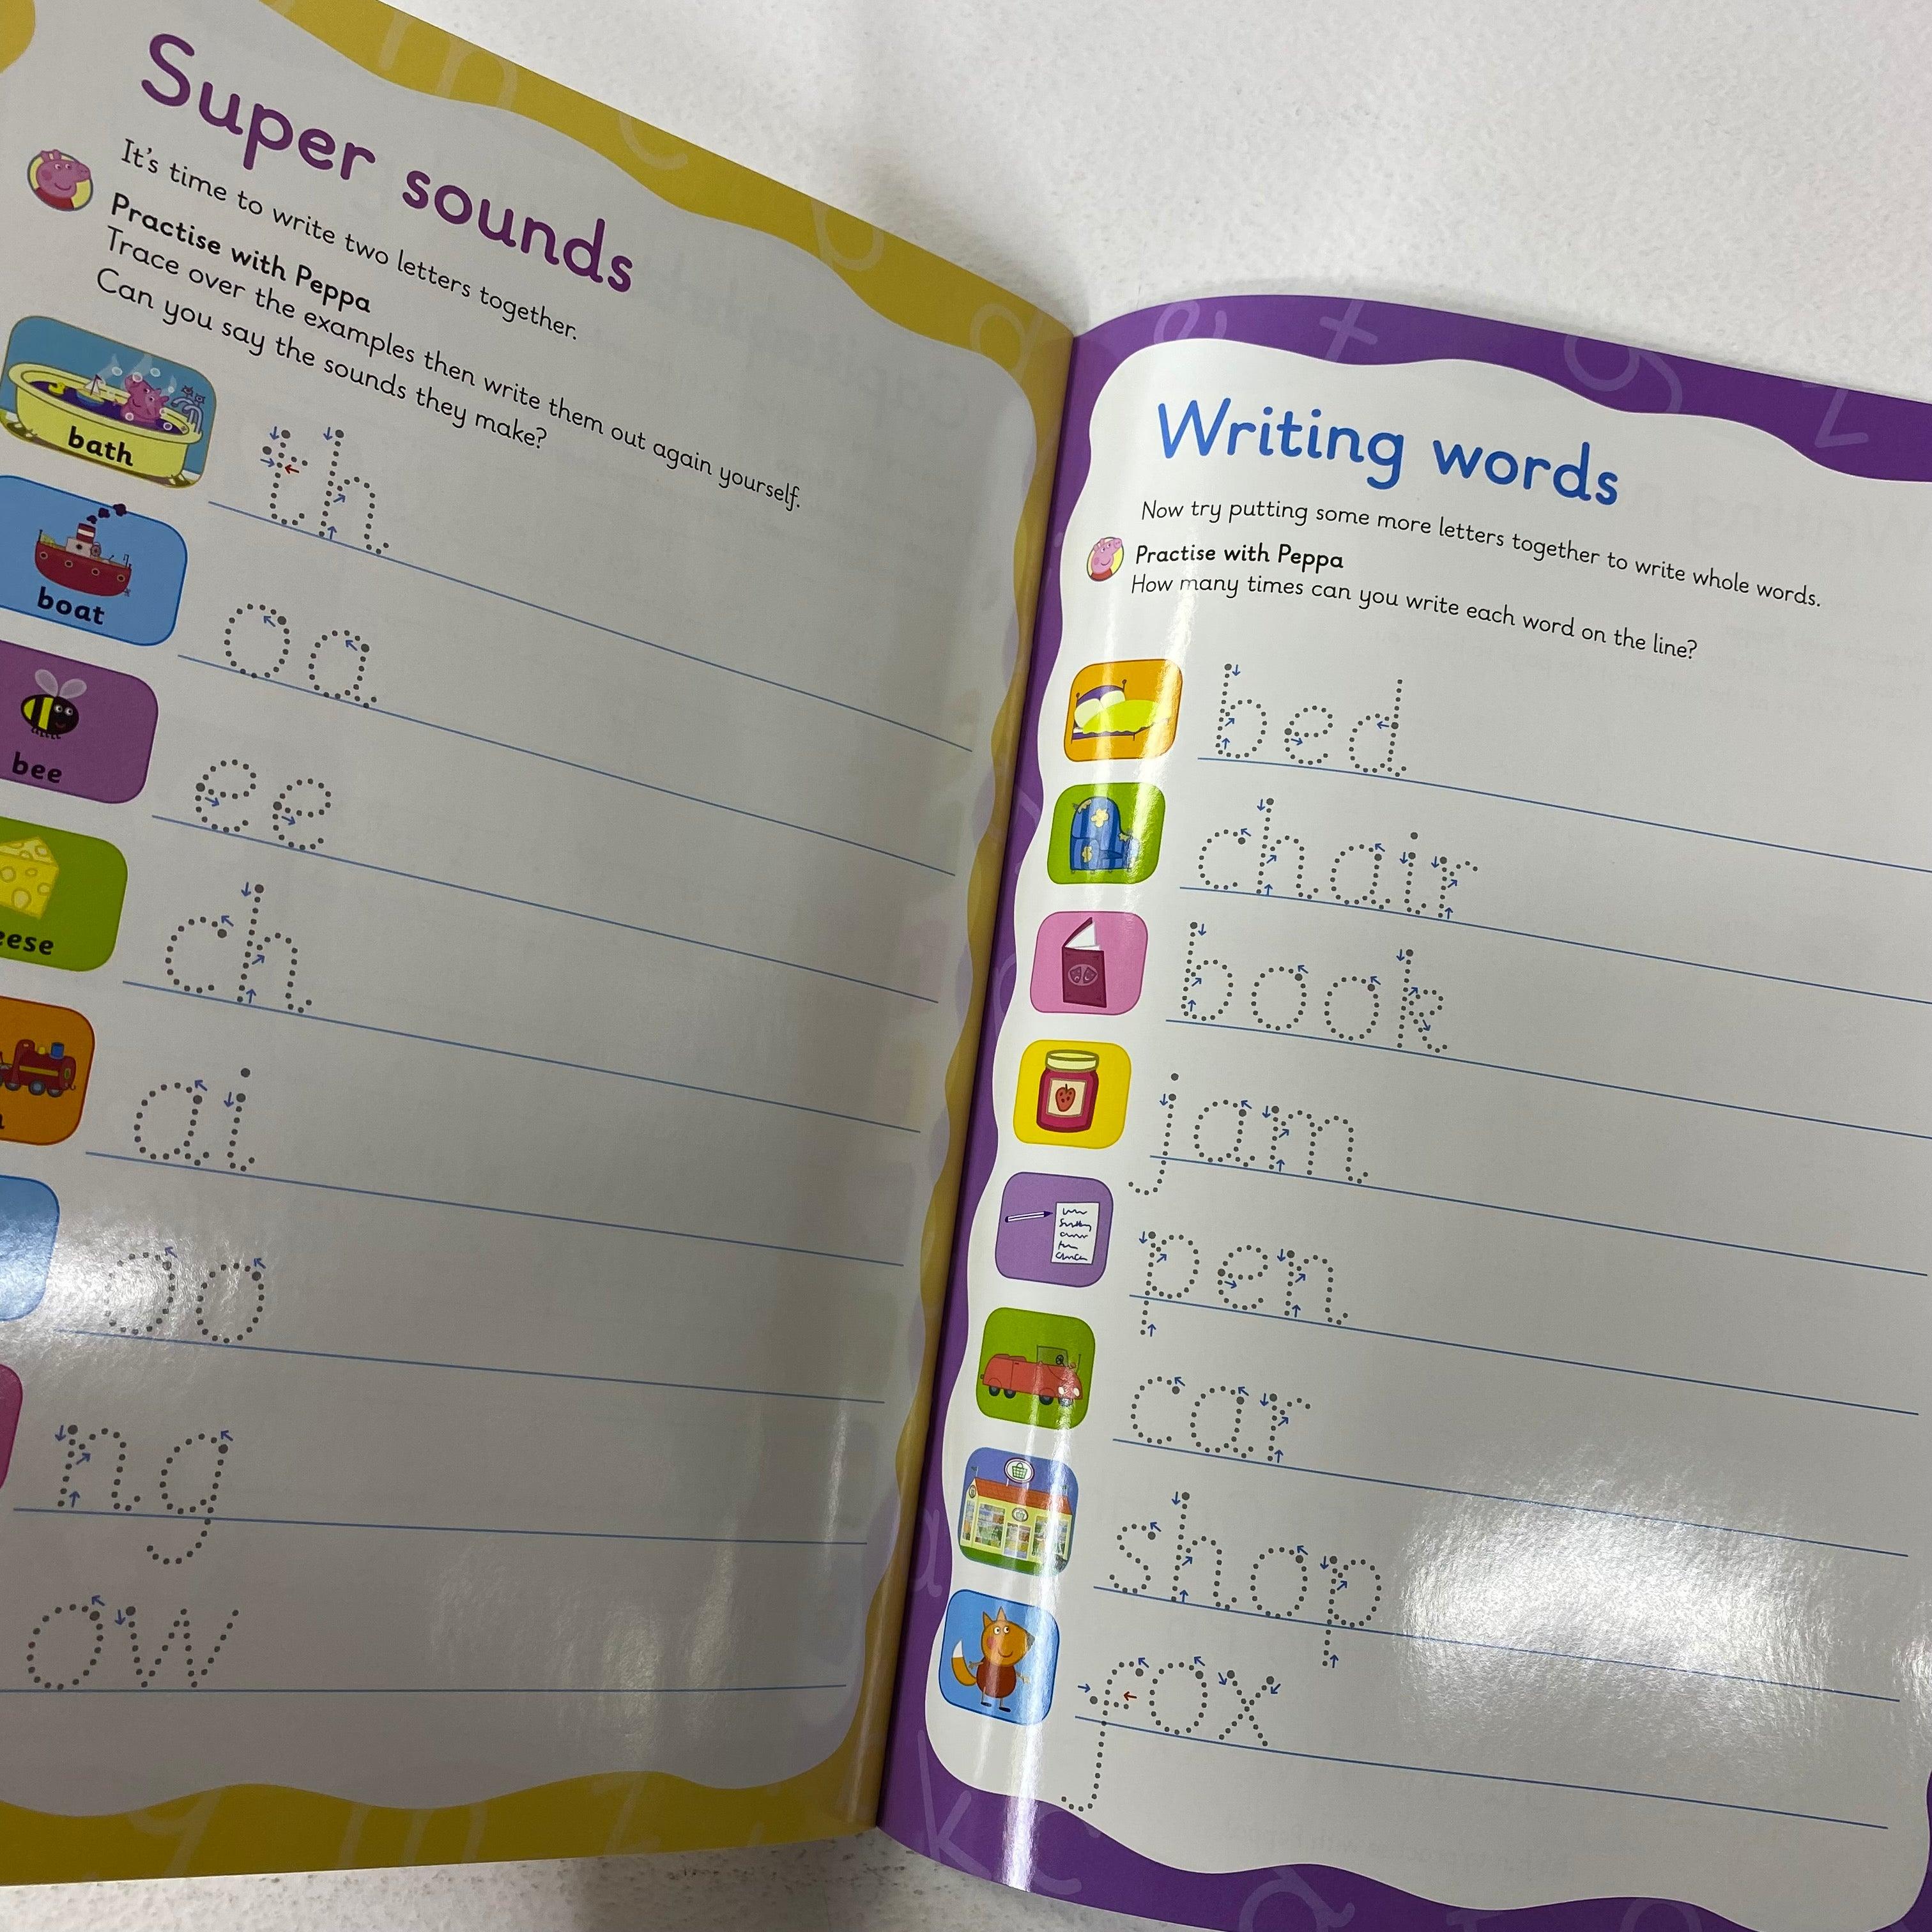 Super sounds
It's time to write two letters together.
Practise with Peppa
Trace over the examples then write them out again yourself.
Can you say the sounds they make?
bath
th
boat
oa
bee
ee
ch
ai
oo
ng
ow
Writing words
Now try putting some more letters together to write whole words.
Practise with Peppa
How many times can you write each word on the line?
bed
chair
book
jam
pen
car
shop
fox